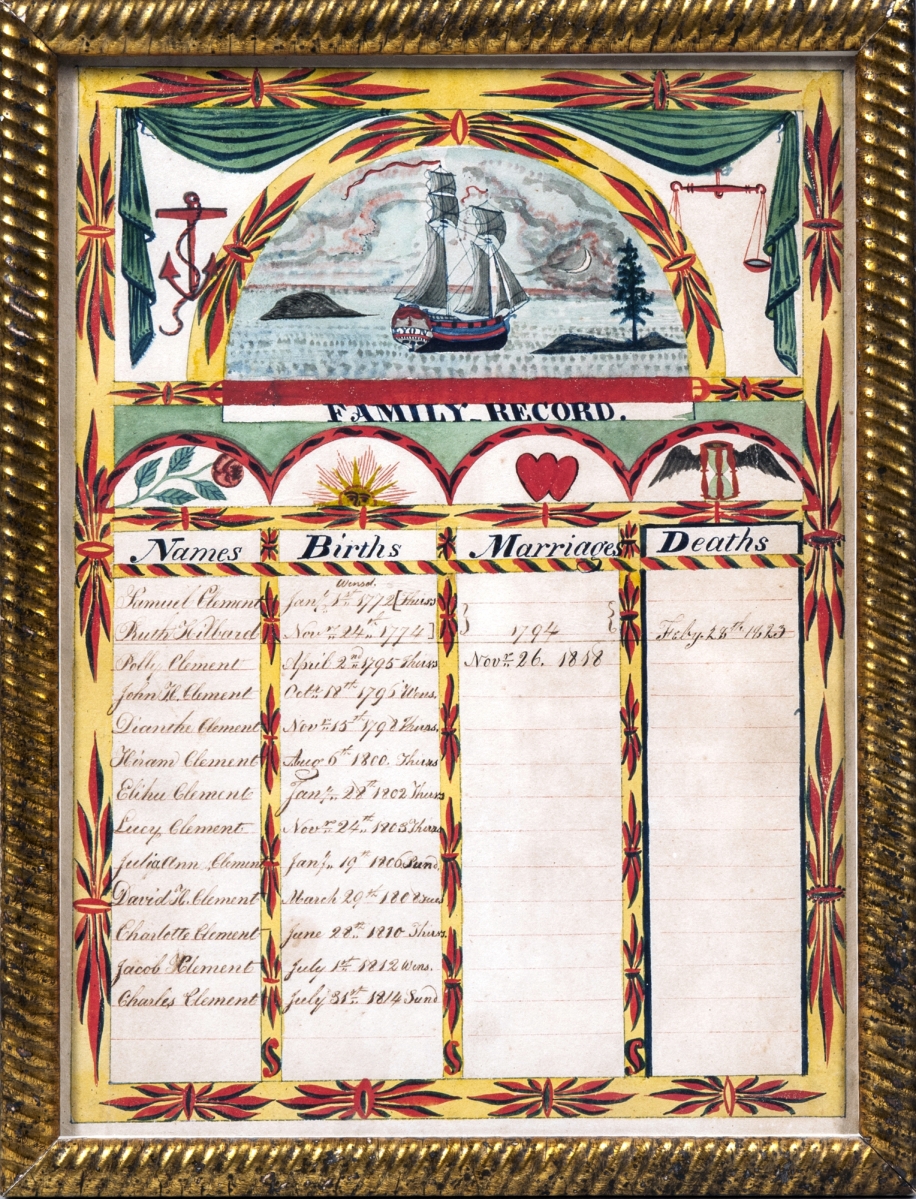 FAMILY RECORD.
Names Births Marriages Deaths
Wensd.
Samuel Clement Jany. 1st 1772 [Thurs
Ruth Hilbard Novr. 24th 1774 ] } 1794 { Feby. 28th 1823
Polly Clement April 2nd 1795 Thurs Novr. 26. 1818
John H. Clement Octr. 18th 1796 Wens.
Dianthe Clement Novr. 15th 1798 Thurs.
Hiram Clement Aug 6th 1800. Thurs
Elihu Clement Jany. 28th 1802 Thurs
Lucy Clement Novr. 24th 1803 Thurs
Julia Ann Clement Jany. 19th 1806 Sund
David H. Clement March 29th 1808 Tues
Charlotte Clement June 28th 1810 Thurs.
Jacob Clement July 1st 1812 Wens.
Charles Clement July 31st 1814 Sund